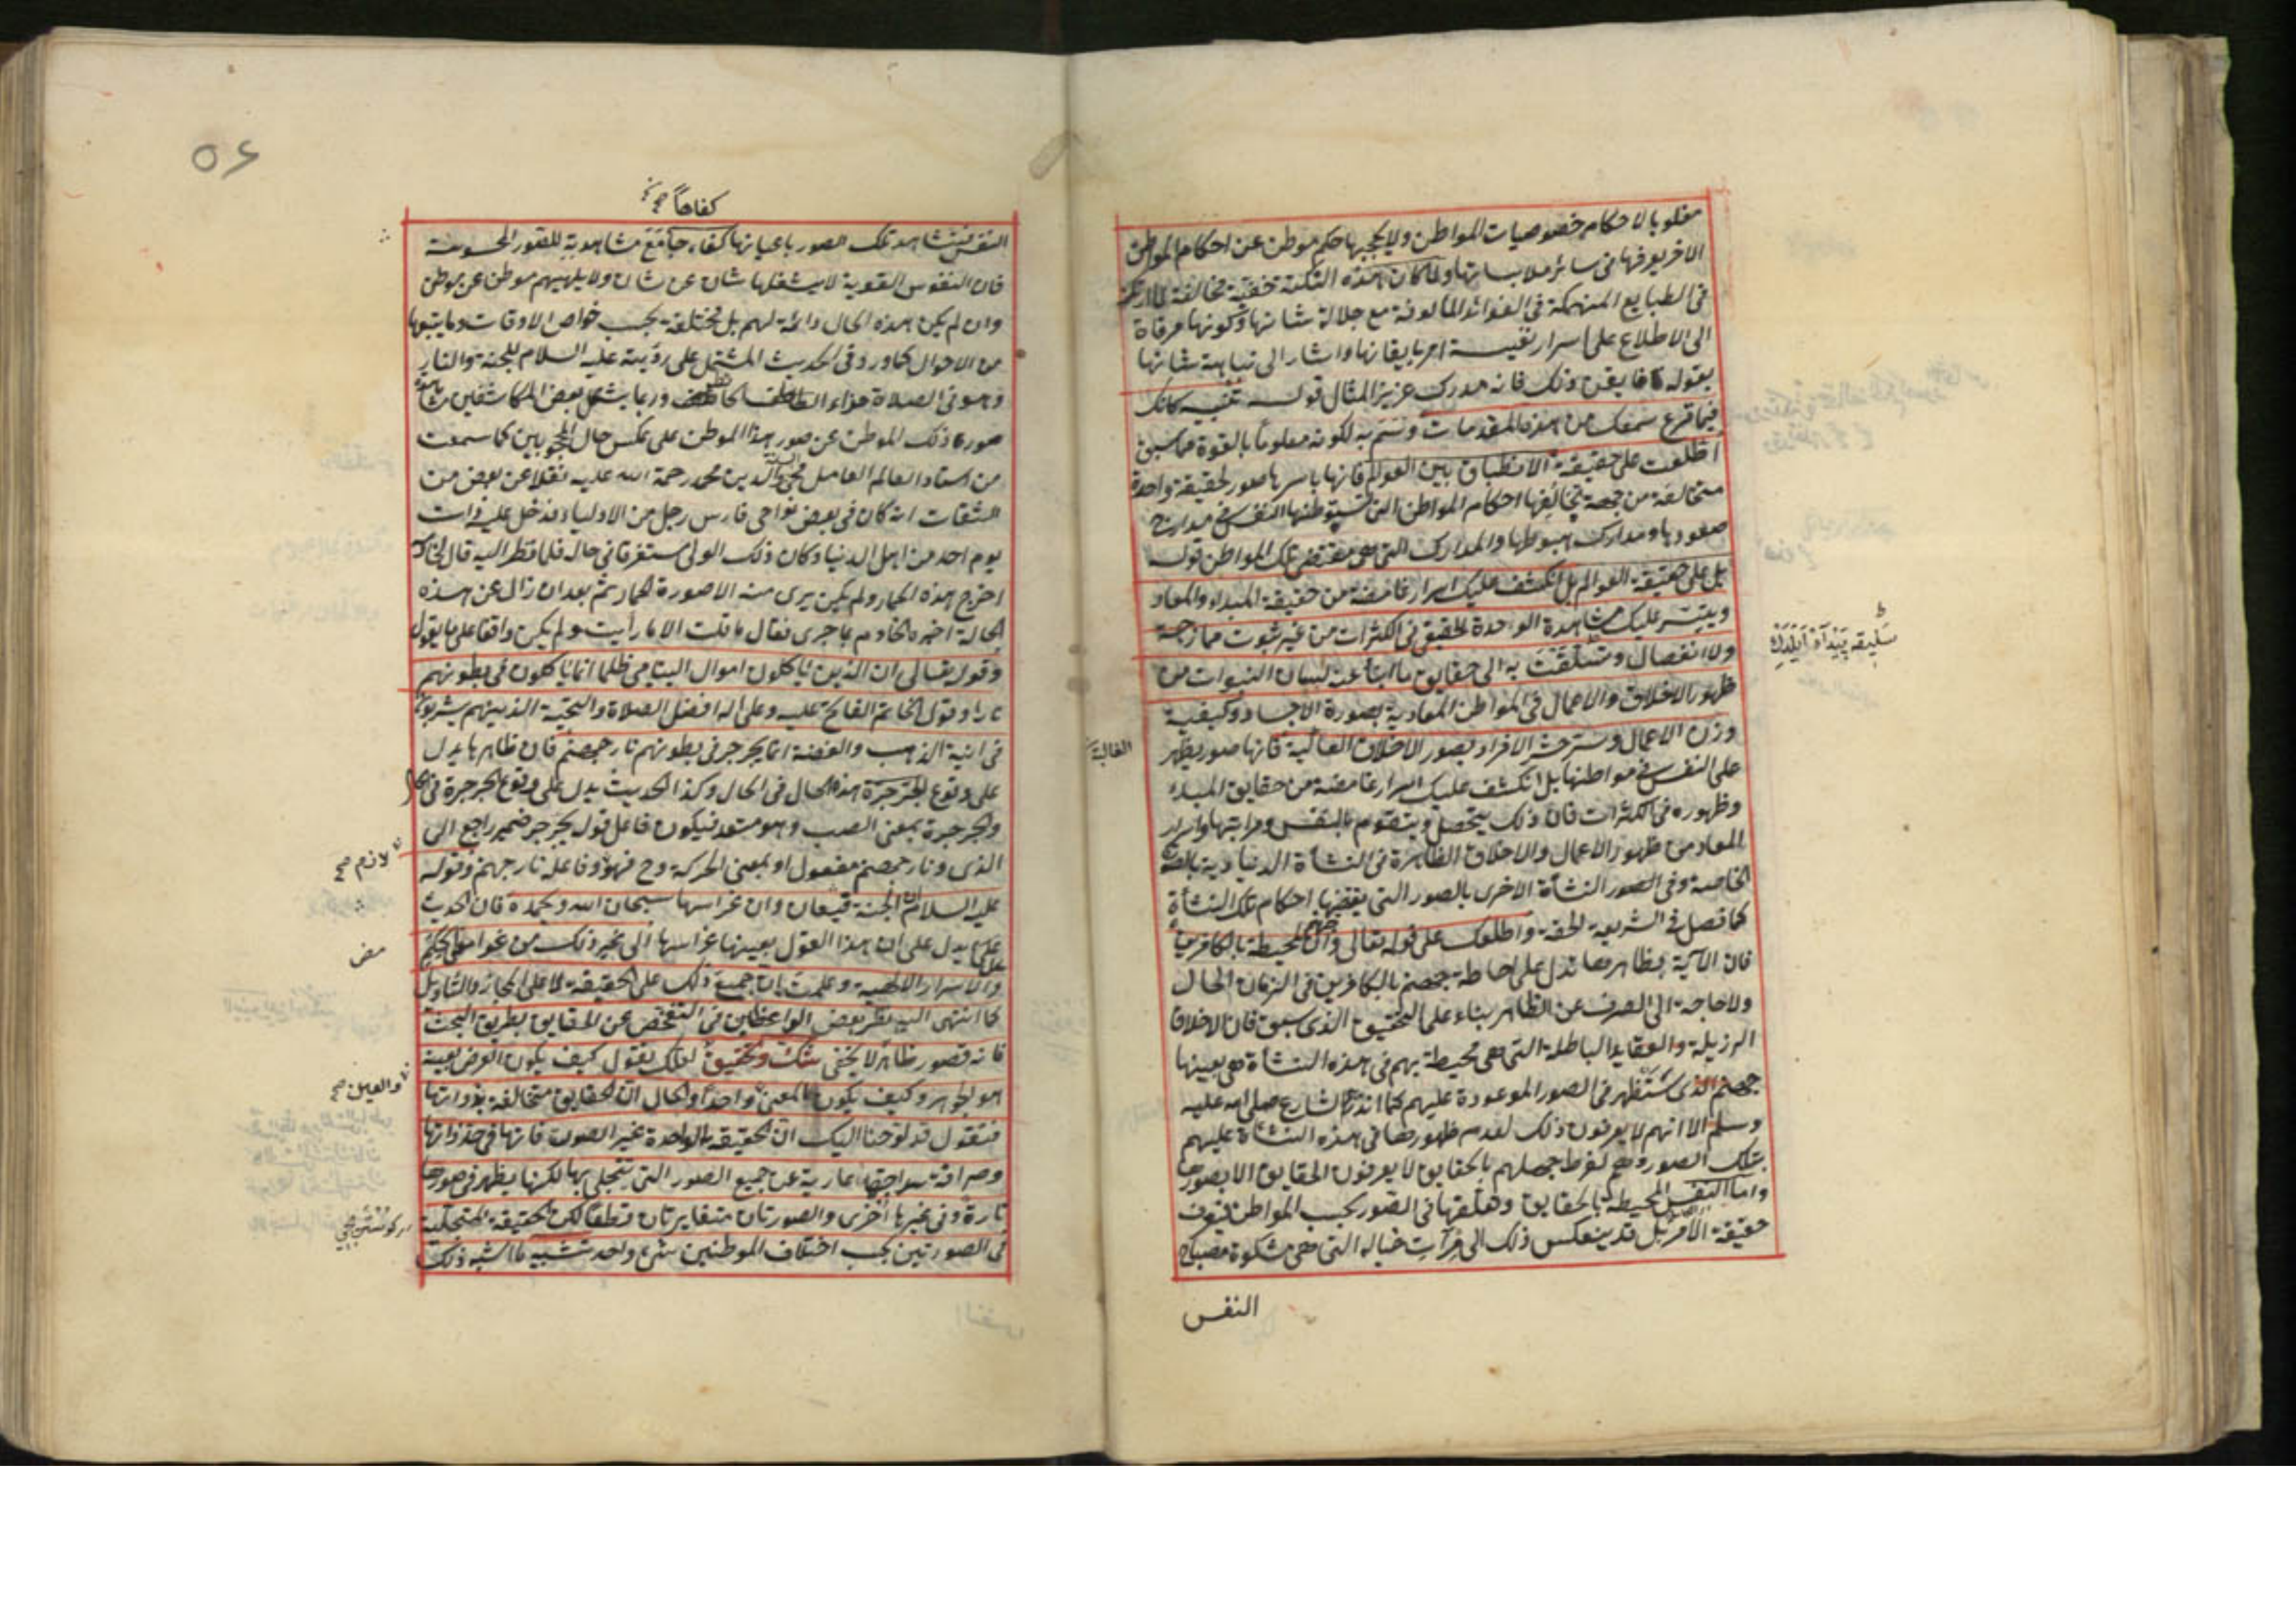 مغلوبا لاحكام خصوصيات المواطن ولا يحجبها حكم موطن عن احكام المواطن
الاخر يعرفها فى سائر ملابساتها ولما كان هذه النكتة خفية مخالفة لما ارتكز
فى الطبايع المنهمكة فى الغواشى المألوفة مع جلالة شانها وكونها مرقاة
الى الاطلاع على اسرار نفيسة امر بايقانها واشار الى نباهة شانها
بقوله فايقن ذلك فانه مدرك عزيز المثال قوله تنبيه كانك
فيما قرع سمعك من هذه المقدمات وتسم به لكونه معلوما بالقوة مما سبق
اطلعت على حقيقة الانطباق بين العوالم فانها باسرها صور لحقيقة واحدة
متخالفة من جهة تخالفها احكام المواطن التى تستوطنها النفس فى مدارج
صعودها ومدارك هبوطها والمدارك التى هى مقتضى تلك المواطن قوله
بل على حقيقة العوالم بل انكشف عليك اسرار غامضة من حقيقة المبداء والمعاد
ويتيسر عليك مشاهدة الواحدة الحقيقى فى الكثرات من غير شوب ممازجة
ولا انفصال وتسلقت به الى حقايق ما انبأ عنه لسان النبوات من
ظهور الاخلاق والاعمال فى المواطن المعادية بصورة الاجساد وكيفية
وزن الاعمال وسر حشر الافراد بصور الاخلاق الغالبة فانها صور يظهر
الغالبة
على النفس فى مواطنها بل انكشف عليك اسرار غامضة من حقايق المبداء
وظهوره فى الكثرات فان ذلك يتحصل ويتقوم بالنفس ومراتبها واسرار
المعاد من ظهور الاعمال والاخلاق الظاهرة فى النشأة الدنياوية بالصفات
الخاصة وفى الصور النشأة الاخرى بالصور التى يقتضيها احكام تلك النشأة
كما فصل فى الشريعة الحقة واطلعك على قوله تعالى وان جهنم لمحيطة بالكافرين
فان الآية بظاهرها تدل على احاطة جهنم بالكافرين فى الزمان الحال
ولا حاجة الى الصرف عن الظاهر بناء على التحقيق الذى سبق فان الاخلاق
الرزيلة والعقايد الباطلة التى هى محيطة بهم فى هذه النشأة هى بعينها
جهنم الذى ستظهر فى الصور الموعودة عليهم كما انذر الشارع صلى الله عليه
وسلم الا انهم لا يعرفون ذلك لعدم ظهورها فى هذه النشأة عليهم
بتلك الصورة وهم لفرط جهلهم بالحقايق لا يعرفون الحقايق الا بصورها
واما النفس المحيطة بالحقايق وتقلبها فى الصور بحسب المواطن فيعرف
حقيقة الامر بل قد ينعكس ذلك الى مرآت خياله التى هى مشكوة مصباح
النفس
سليقه پيدا ايلدك
٥٤
كفاحا صح
النفس فيشاهد تلك الصور باعيانها كفاحا مع مشاهدته للصور المحسوسة
فان النفوس القوية لا يشغلها شان عن شان ولا يلهيهم موطن عن موطن
وان لم يكن هذه الحال دائمة لهم بل مختلفة بحسب خواص الاوقات وما يتبعها
من الاحوال كما ورد فى الحديث المشتمل على رؤية عليه السلام للجنة والنار
وهو فى الصلاة حزاء الحائط وربما يشغل بعض المكاشفين مشاهدة
صورة ذلك الموطن عن صور هذا الموطن على عكس حال المحجوبين كما سمعت
من استاد العالم العامل محى الدين محمد رحمة الله عليه نقلا عن بعض من
الثقات انه كان فى بعض نواحى فارس رجل من الاولياء فدخل عليه ذات
يوم احد من اهل الدنيا وكان ذلك الولى مستغرقا فى حاله فلما نظر اليه قال لخادمه
اخرج هذه الحمار ولم يكن يرى منه الا صورة الحمار ثم بعد ان زال عن هذه
الحالة اخبره الخادم بما جرى فقال ما قلت الا ما رأيت ولم يكن واقفا على ما يقول
وقوله تعالى ان الذين ياكلون اموال اليتامى ظلما انما ياكلون فى بطونهم
نارا وقول الخاتم الفاتح عليه وعلى اله افضل الصلاة والتحية الذين هم يشربون
فى انية الذهب والفضة انما يجرجر فى بطونهم نار جهنم فان ظاهرها يدل
على وقوع الجرجرة هذه الحال فى الحال وكذا الحديث يدل على وقوع الجرجرة فى الحال
والجرجرة بمعنى الصب وهو متعد فيكون فاعل قول يجرجر ضمير راجع الى
الذى ونار جهنم مفعول او بمعنى الحركة وح فهو وفاعله نار جهنم وقوله
لازم صح
عليه السلام ان الجنة قيعان وان غراسها سبحان الله وبحمده فان الحديث
على ما يدل على ان هذا القول بعينها غراسها الى غير ذلك من غوامض الحكم
والاسرار الالهية وعلمت بان جميع ذلك على الحقيقة لا على المجاز والتاويل
كما انتهى اليه نظر بعض الواعظين فى التفحص عن الحقايق بطريق البحث
فانه قصور ظاهر لا يخفى شك وتحقيق لعلك تقول كيف يكون العرض بعينه
هو الجوهر وكيف يكون المعنى واحدا والحال ان الحقايق متخالفة بذواتها
والعين صح
فنقول قد لوحنا اليك ان الحقيقة الواحدة غير الصور فانها فى حد ذاتها
وصرافة سذاجتها عارية عن جميع الصور التى تتجلى بها لكنها يظهر فى صورها
تارة وفى غيرها اخرى والصورتان متغايرتان قطعا لكن الحقيقة المتجلية
فى الصورتين بحسب اختلاف الموطنين شئ واحد تشبيه ما اشبه ذلك